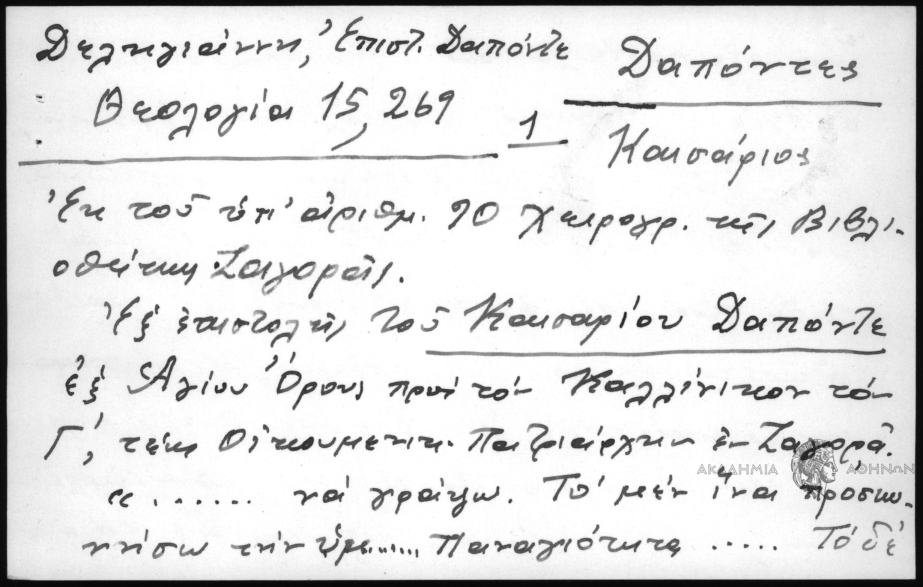 Δεληγιάννη, Ἐπιστ. Δαπόντε
Θεολογία 15, 269
1
Δαπόντες
Καισάριος
Ἐκ τοῦ ὑπ' ἀριθμ. 90 χειρογρ. τῆς Βιβλι-
οθήκης Ζαγορᾶς.
Ἐξ ἐπιστολῆς τοῦ Καισαρίου Δαπόντε
ἐξ Ἁγίου Ὄρους πρὸς τὸν Καλλίνικον τὸν
Γ', τέως Οἰκουμενικ. Πατριάρχην ἐν Ζαγορᾷ.
"....... νὰ γράψω. Τὸ μὲν ἵνα προσκυ-
νήσω τὴν ὑμ...... Παναγιότητα ..... Τὸ δὲ
ΑΚΑΔΗΜΙΑ ΑΘΗΝΩΝ